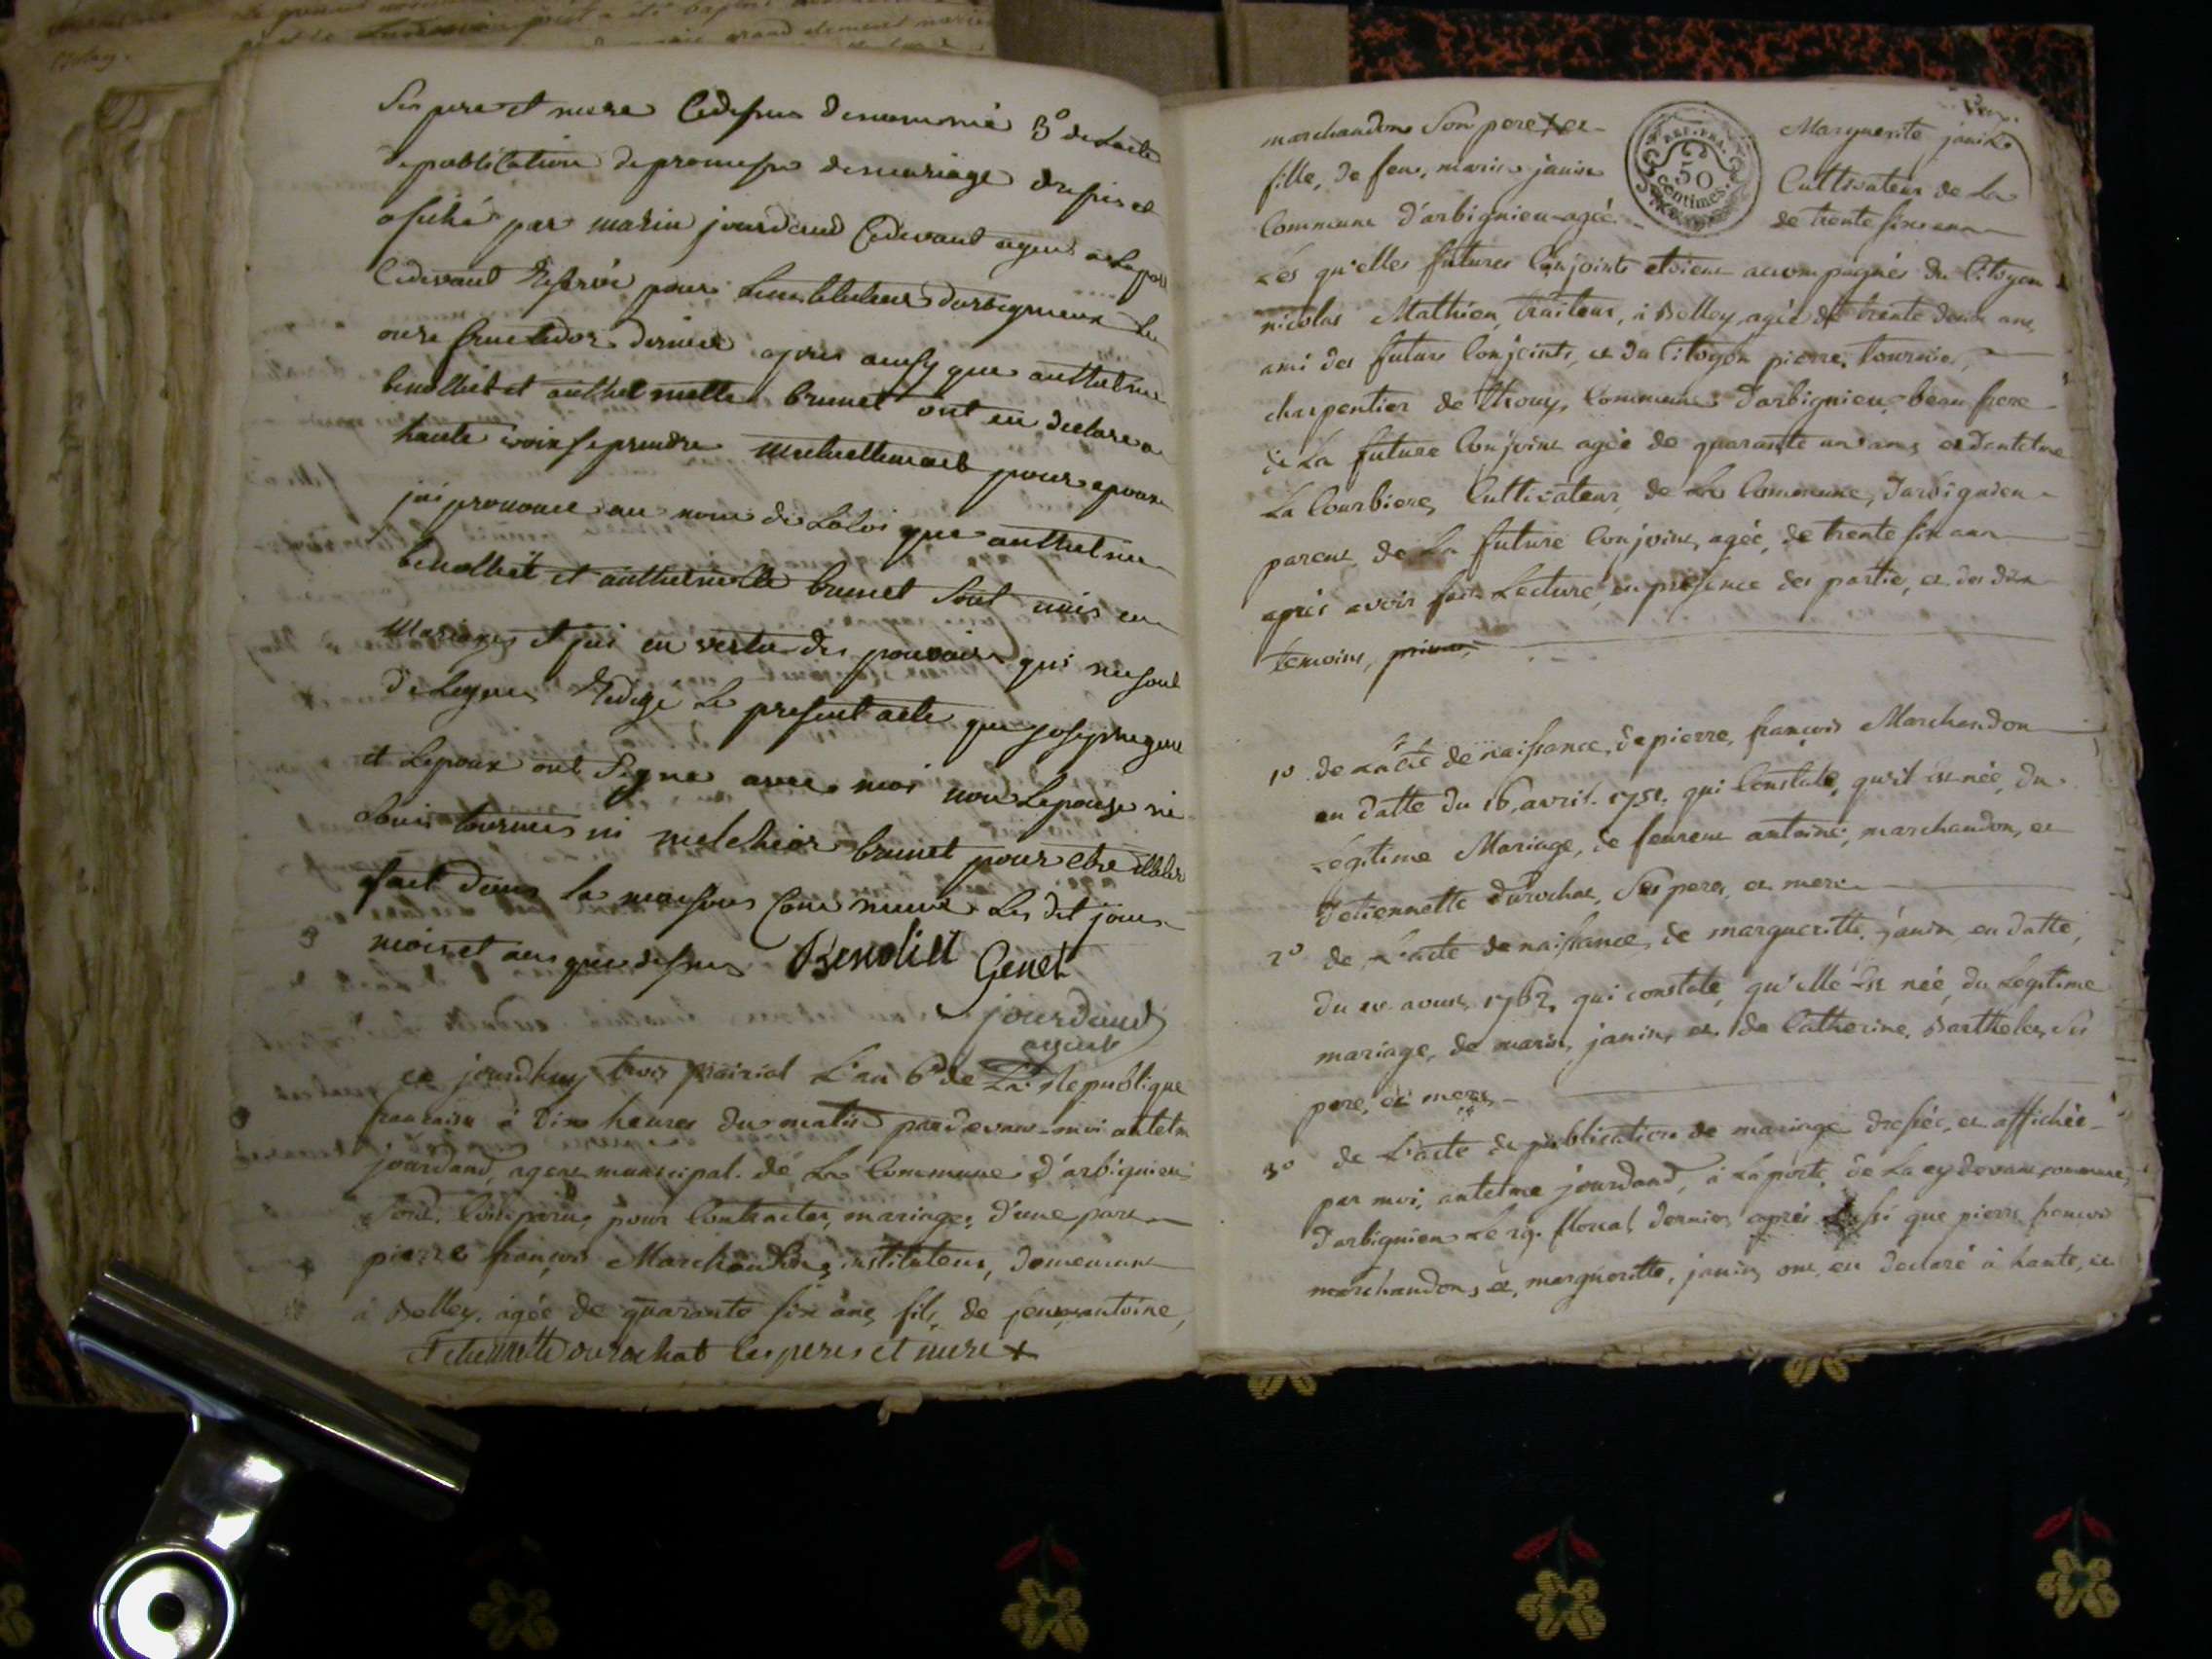 Ses pere et mere Cidessus denommé 3o de Lacte
de publication de promesse de mariage dressé et
afiché par marin jourdand Cidevant agent a La porte
Cidevant pour darbignieux Le
onze fructidor dernier apres ainsy que anthelme
benolliet et anthelmette brunet ont eu declare a
haute voix se prendre mutuellement pour epoux
jai prononcé au nom de La loi que anthelme
benolliet et anthelmette brunet sont unis en
Mariage et jai en vertu des pouvoirs qui me sont
delegues Redigé Le present acte que joseph genet
et Lepoux ont signe avec moi non Lepouse ni
tournier ni melchior brunet pour etre illitere
fait dans la maison Commune Les dit jour
mois et ans que dessus Benoliet Genet
jourdand
agent
ce jourdhuy trois prairial L'an 6e de La Republique
francaise à dix heures du matin pardevant moi antelme
jourdand, agent municipal de La Commune d'arbignieu
sont Comparus pour Contracter mariage, d'une part
pierre françois Marchandon, instituteur, demeurant
à Belley, agée de quarante six ans, fils, de feu antoine,
et etiennette durochat les peres et mere +
marchandon Son pere + et Marguerite janin
fille, de feu, marin janin Cultivateur de La
Commune d'arbignieu agée de trente six ans
REP. FRA.
50
centimes.
Les qu'elles futures Conjoints etoient accompagnés du Citoyen
nicolas Mathieu, traiteur, à Belley, agée de trente deux ans,
ami des futurs Conjoints, et du Citoyen pierre, tournier,
charpentier de thouy, Commune d'arbignieu, beau frere
de La future Conjointe agée de quarante un ans et d'antelme
La Courbiere, Cultivateur, de La Commune, d'arbignieu
parent de La future Conjointe, agée, de trente six ans
aprés avoir fait Lecture, en presence des partie, et des dits
temoins,
1o de L'acte de naissance, de pierre, françois Marchandon
en datte du 16 avril 1751. qui Constate, qu'il est née, du
Légitime Mariage, de antoine, marchandon, et
d'etiennette durochat, Ses peres, et mere
2o de L'acte de naissance, de margueritte, janin, en datte,
du aoust 1762, qui constate, qu'elle est née, du Légitime
mariage, de marin, janin, et de Catherine, Barthelet, Ses
pere, et mere
3o de L'acte de publication de mariage dressée, et affichée
par moi, antelme jourdand, à La porte, de La cy devant commune,
d'arbignieu Le 29. floreal dernier aprés ainsi que pierre francois
marchandon, et, margueritte, janin, ont eu declaré à haute, et